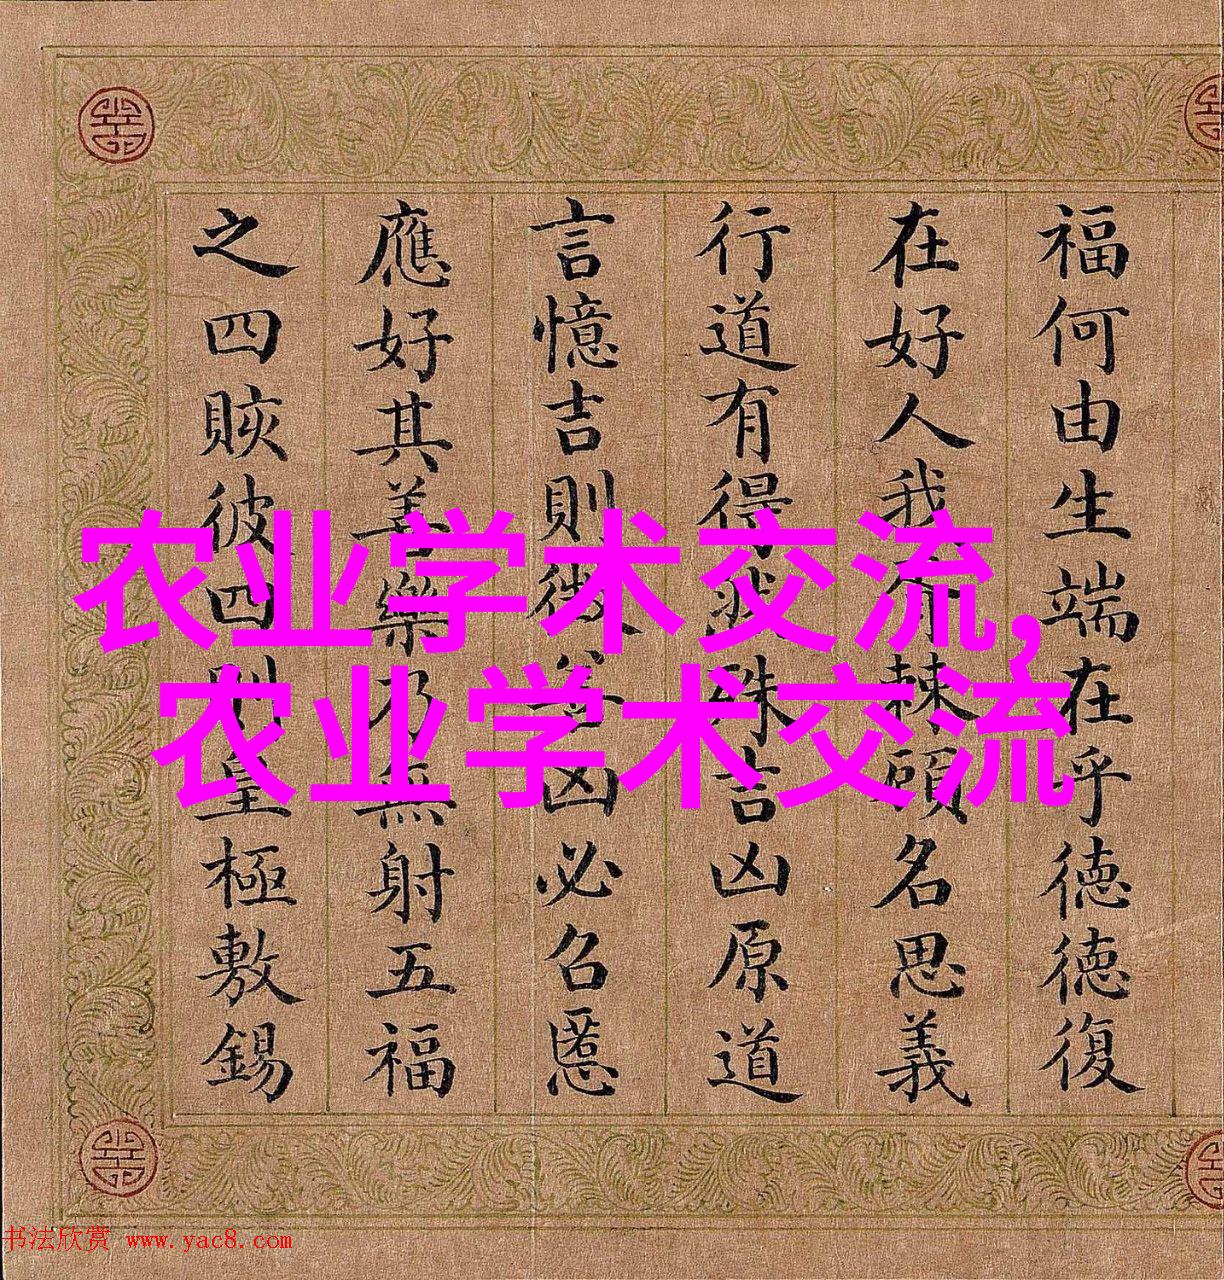 福何由生端在乎德德復
在好人我有棘名思義
行道有得殊吉凶原道
言憶吉則凶必召慝
應好其善樂乃無射五福
之四賅彼四則皇極敷錫
农业学术交流,
农业学术交流
书法欣赏 www.yac8.com